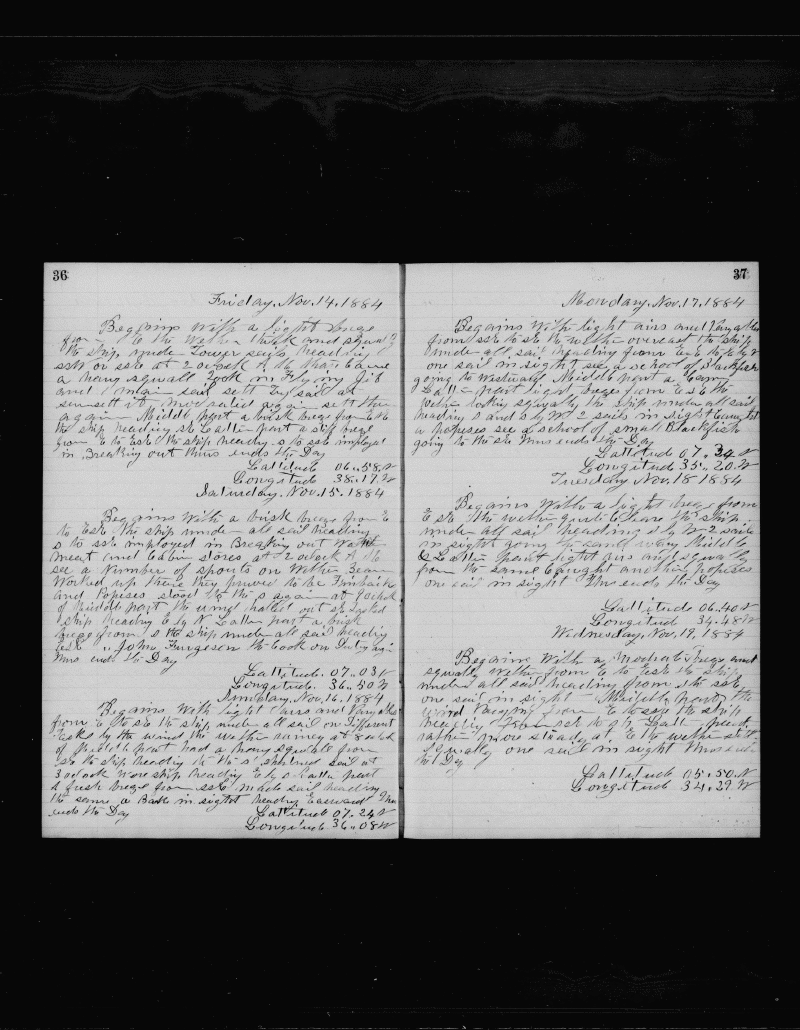 36
Friday, Nov. 14, 1884
Beggins With a light breze
from E the Wether thick and squaly
the ship under Lower sails heading
SSW or SSE at 2 oclock P the Main Came
a heavy squall took in Flying Jib
and Main sail sett sail at
sunsett it Moderated again sett them
again Middle part a brisk breze from E to ESE
the ship heading SE Latter part a stif breze
from E to ESE the ship heading S to SSE imployed
in Breaking out thus ends the Day
Lattitude 06..58 N
Longitud 38..17 W
Saturday, Nov. 15. 1884
Beggins With a brisk breze from E
to ESE the ship under all sail heading
S to SSE imployed in Breaking out Water
meat and Cabin stores at 2 oclock P the
see a Number of spouts on Wether Beam
Worked up there they proved to be Finbacks
and Popises stood to the S again at
of Middle part the wind halled out SE tacked
ship heading E by N Latter part a brisk
breze from S the ship under all sail heading
ESE .. John Furgesen the Cook on Duty again
thus ends the Day
Lattitude. 07..03 N
Longitude. 36..50 W
Sunday, Nov. 16. 1884
Begains With light airs and Varyable
from E to SE the ship under all sail on Different
Tacks by the wind the wether rainey at 8 oclock
of Middle part had a heavy squale from
SE the ship heading to the S shortned sail at
3 oclock Wore ship heading E by S Latter part
a fresh breze from SSE made sail heading
the same a Bark in sight heading Eastward Thus
ends the Day
Lattitud 07..24 N
Longitud. 36..08 W
37
Monday, Nov. 17, 1884
Begains With light airs and Varyable
from SSE to SE the wether overcast the ship
under all sail heading from E to E by N
one sail in sight see a school of Blackfish
going to Westward Middle part a Calm
Latter part light breze from ESE the
wether looking squally the ship under all sail
heading S and S by W 2 sails in sight Caught
a popises see a school of small Blackfish
going to the SE thus ends the Day
Lattitud 07..34 N
Longitud 35..20 W
Tuesday Nov. 18 1884
Begains With a light breze from
ESE the wether quite Cleare the ship
under all sail heading S by W 2 sails
in sight going
Latter Part light airs and squally
from the same Caught another popises
one sail in sight thus ends the Day
Lattitud 06..40 N
Longitud 34..48 W
Wednesday, Nov. 19, 1884
Begains With a Modrate breze and
squaly wether from E to ESE the ship
under all sail heading from S to SSE
one sail in sight Middle part the
wind Varying from E to SSE the ship
heading from SE to S by Latter part
rather more steady at E the wether still
squally one sail in sight thus ends
the Day
Lattitud 05..50 N
Longitud 34..29 W